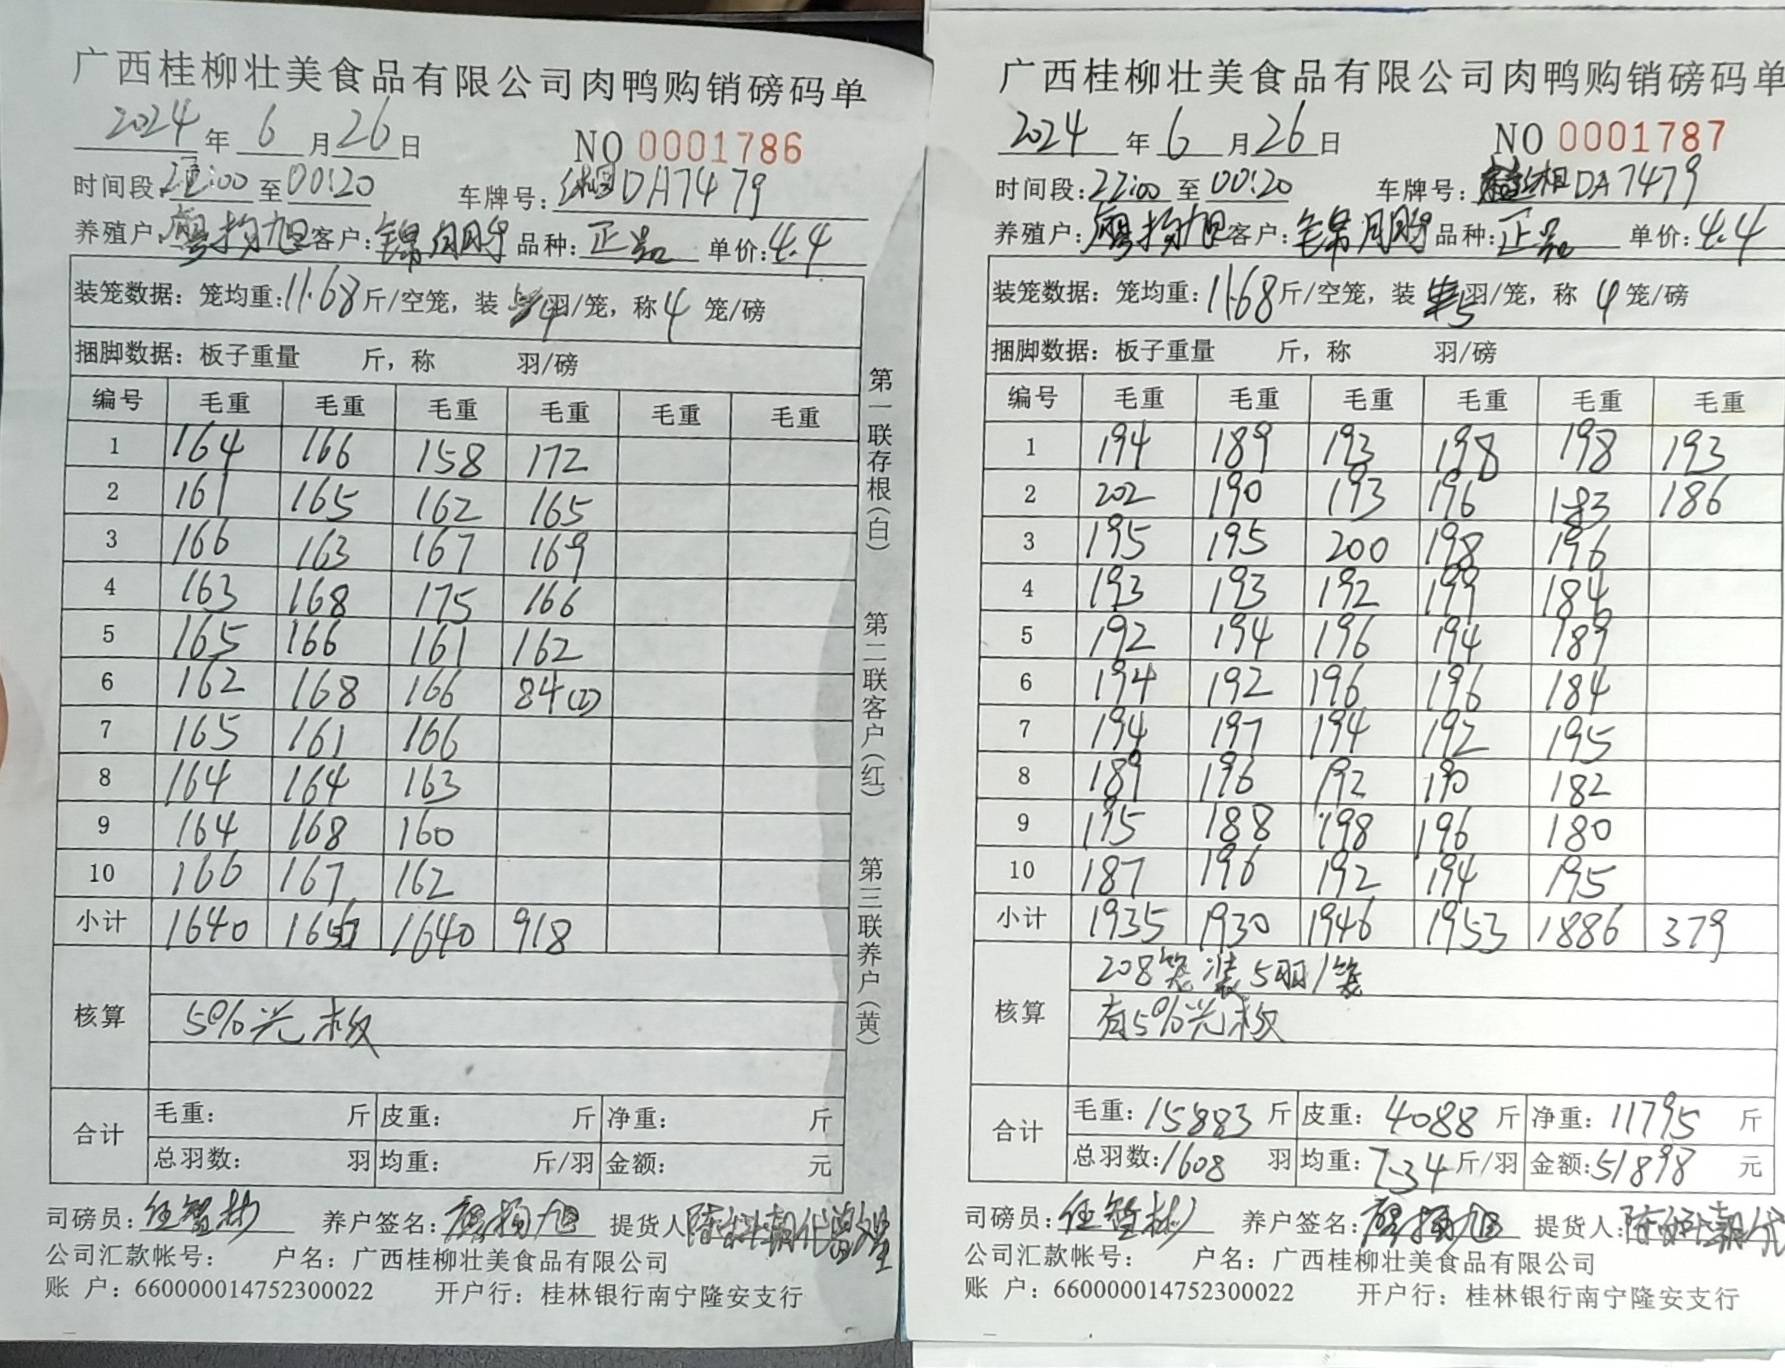 广西桂柳壮美食品有限公司肉鸭购销磅码单
2024年 6 月 26 日 NO 0001786
时间段: 22:00 至 00:20 车牌号: 湘DA7479
养殖户: 扬旭 客户: 锦 品种: 正品 单价: 4.4
装笼数据: 笼均重: 11.68 斤/空笼, 装 4 羽/笼, 称 4 笼/磅
捆脚数据: 板子重量 斤, 称 羽/磅
编号 毛重 毛重 毛重 毛重 毛重 毛重
1 164 166 158 172
2 161 165 162 165
3 166 163 167 169
4 163 168 175 166
5 165 166 161 162
6 162 168 166 84(2)
7 165 161 166
8 164 164 163
9 164 168 160
10 166 167 162
小计 1640 1640 918
核算
5%光板
合计 毛重: 斤 皮重: 斤 净重: 斤
总羽数: 羽 均重: 斤/羽 金额: 元
司磅员: 任智彬 养户签名: 扬旭 提货人:
公司汇款帐号: 户名: 广西桂柳壮美食品有限公司
账 户: 660000014752300022 开户行: 桂林银行南宁隆安支行
第一联存根(白) 第二联客户(红) 第三联养户(黄)
广西桂柳壮美食品有限公司肉鸭购销磅码单
2024 年 6 月 26 日 NO 0001787
时间段: 22:00 至 00:20 车牌号: 湘DA7479
养殖户: 扬旭 客户: 锦 品种: 正品 单价: 4.4
装笼数据: 笼均重: 11.68 斤/空笼, 装 5 羽/笼, 称 4 笼/磅
捆脚数据: 板子重量 斤, 称 羽/磅
编号 毛重 毛重 毛重 毛重 毛重 毛重
1 194 189 193 198 198 193
2 202 190 193 196 183 186
3 195 195 200 198 196
4 193 193 192 199 184
5 192 194 196 194 189
6 194 192 196 196 184
7 194 197 194 192 195
8 189 196 192 190 182
9 195 188 198 196 180
10 187 196 192 194 195
小计 1935 1930 1946 1953 1886 379
核算 208笼装5羽/笼
有5%光板
合计 毛重: 15883 斤 皮重: 4088 斤 净重: 11795 斤
总羽数: 1608 羽 均重: 7.34 斤/羽 金额: 51898 元
司磅员: 任智彬 养户签名: 扬旭 提货人:
公司汇款帐号: 户名: 广西桂柳壮美食品有限公司
账 户: 660000014752300022 开户行: 桂林银行南宁隆安支行